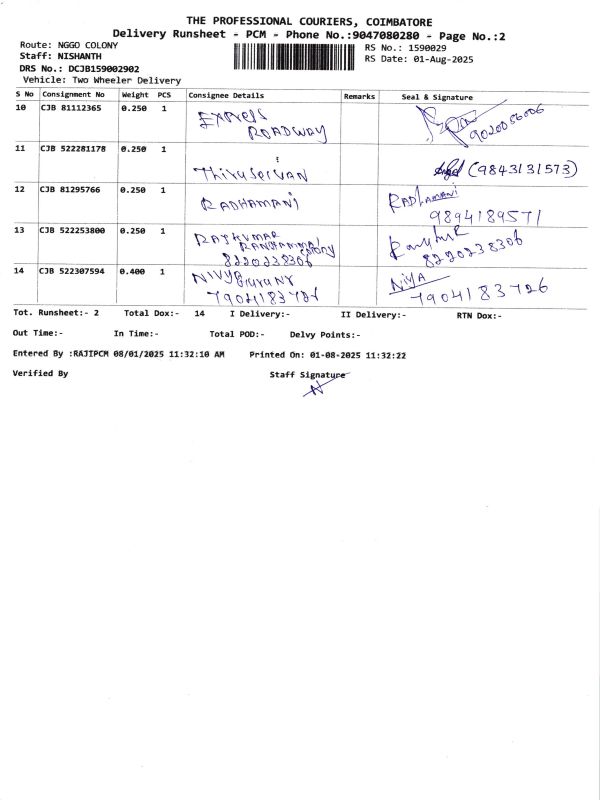 THE PROFESSIONAL COURIERS, COIMBATORE
Delivery Runsheet - PCM - Phone No.:9047080280 - Page No.:2
Route: NGGO COLONY
RS No.: 1590029
Staff: NISHANTH
RS Date: 01-Aug-2025
DRS No.: DCJB159002902
Vehicle: Two Wheeler Delivery
S No Consignment No Weight PCS Consignee Details Remarks Seal & Signature
10 CJB 81112365 0.250 1 Express ROADWAY 9020056006
11 CJB 522281178 0.250 1 Thiruselvan (9843131573)
12 CJB 81295766 0.250 1 RADHAMANI RADHAMANI
9894189571
13 CJB 522253800 0.250 1 RAJKUMAR
COLONY
8220238306 8220238306
14 CJB 522307594 0.400 1 NIVYA NIVYA
7904183726 7904183726
Tot. Runsheet:- 2 Total Dox:- 14 I Delivery:- II Delivery:- RTN Dox:-
Out Time:- In Time:- Total POD:- Delvy Points:-
Entered By :RAJIPCM 08/01/2025 11:32:10 AM Printed On: 01-08-2025 11:32:22
Verified By Staff Signature
N